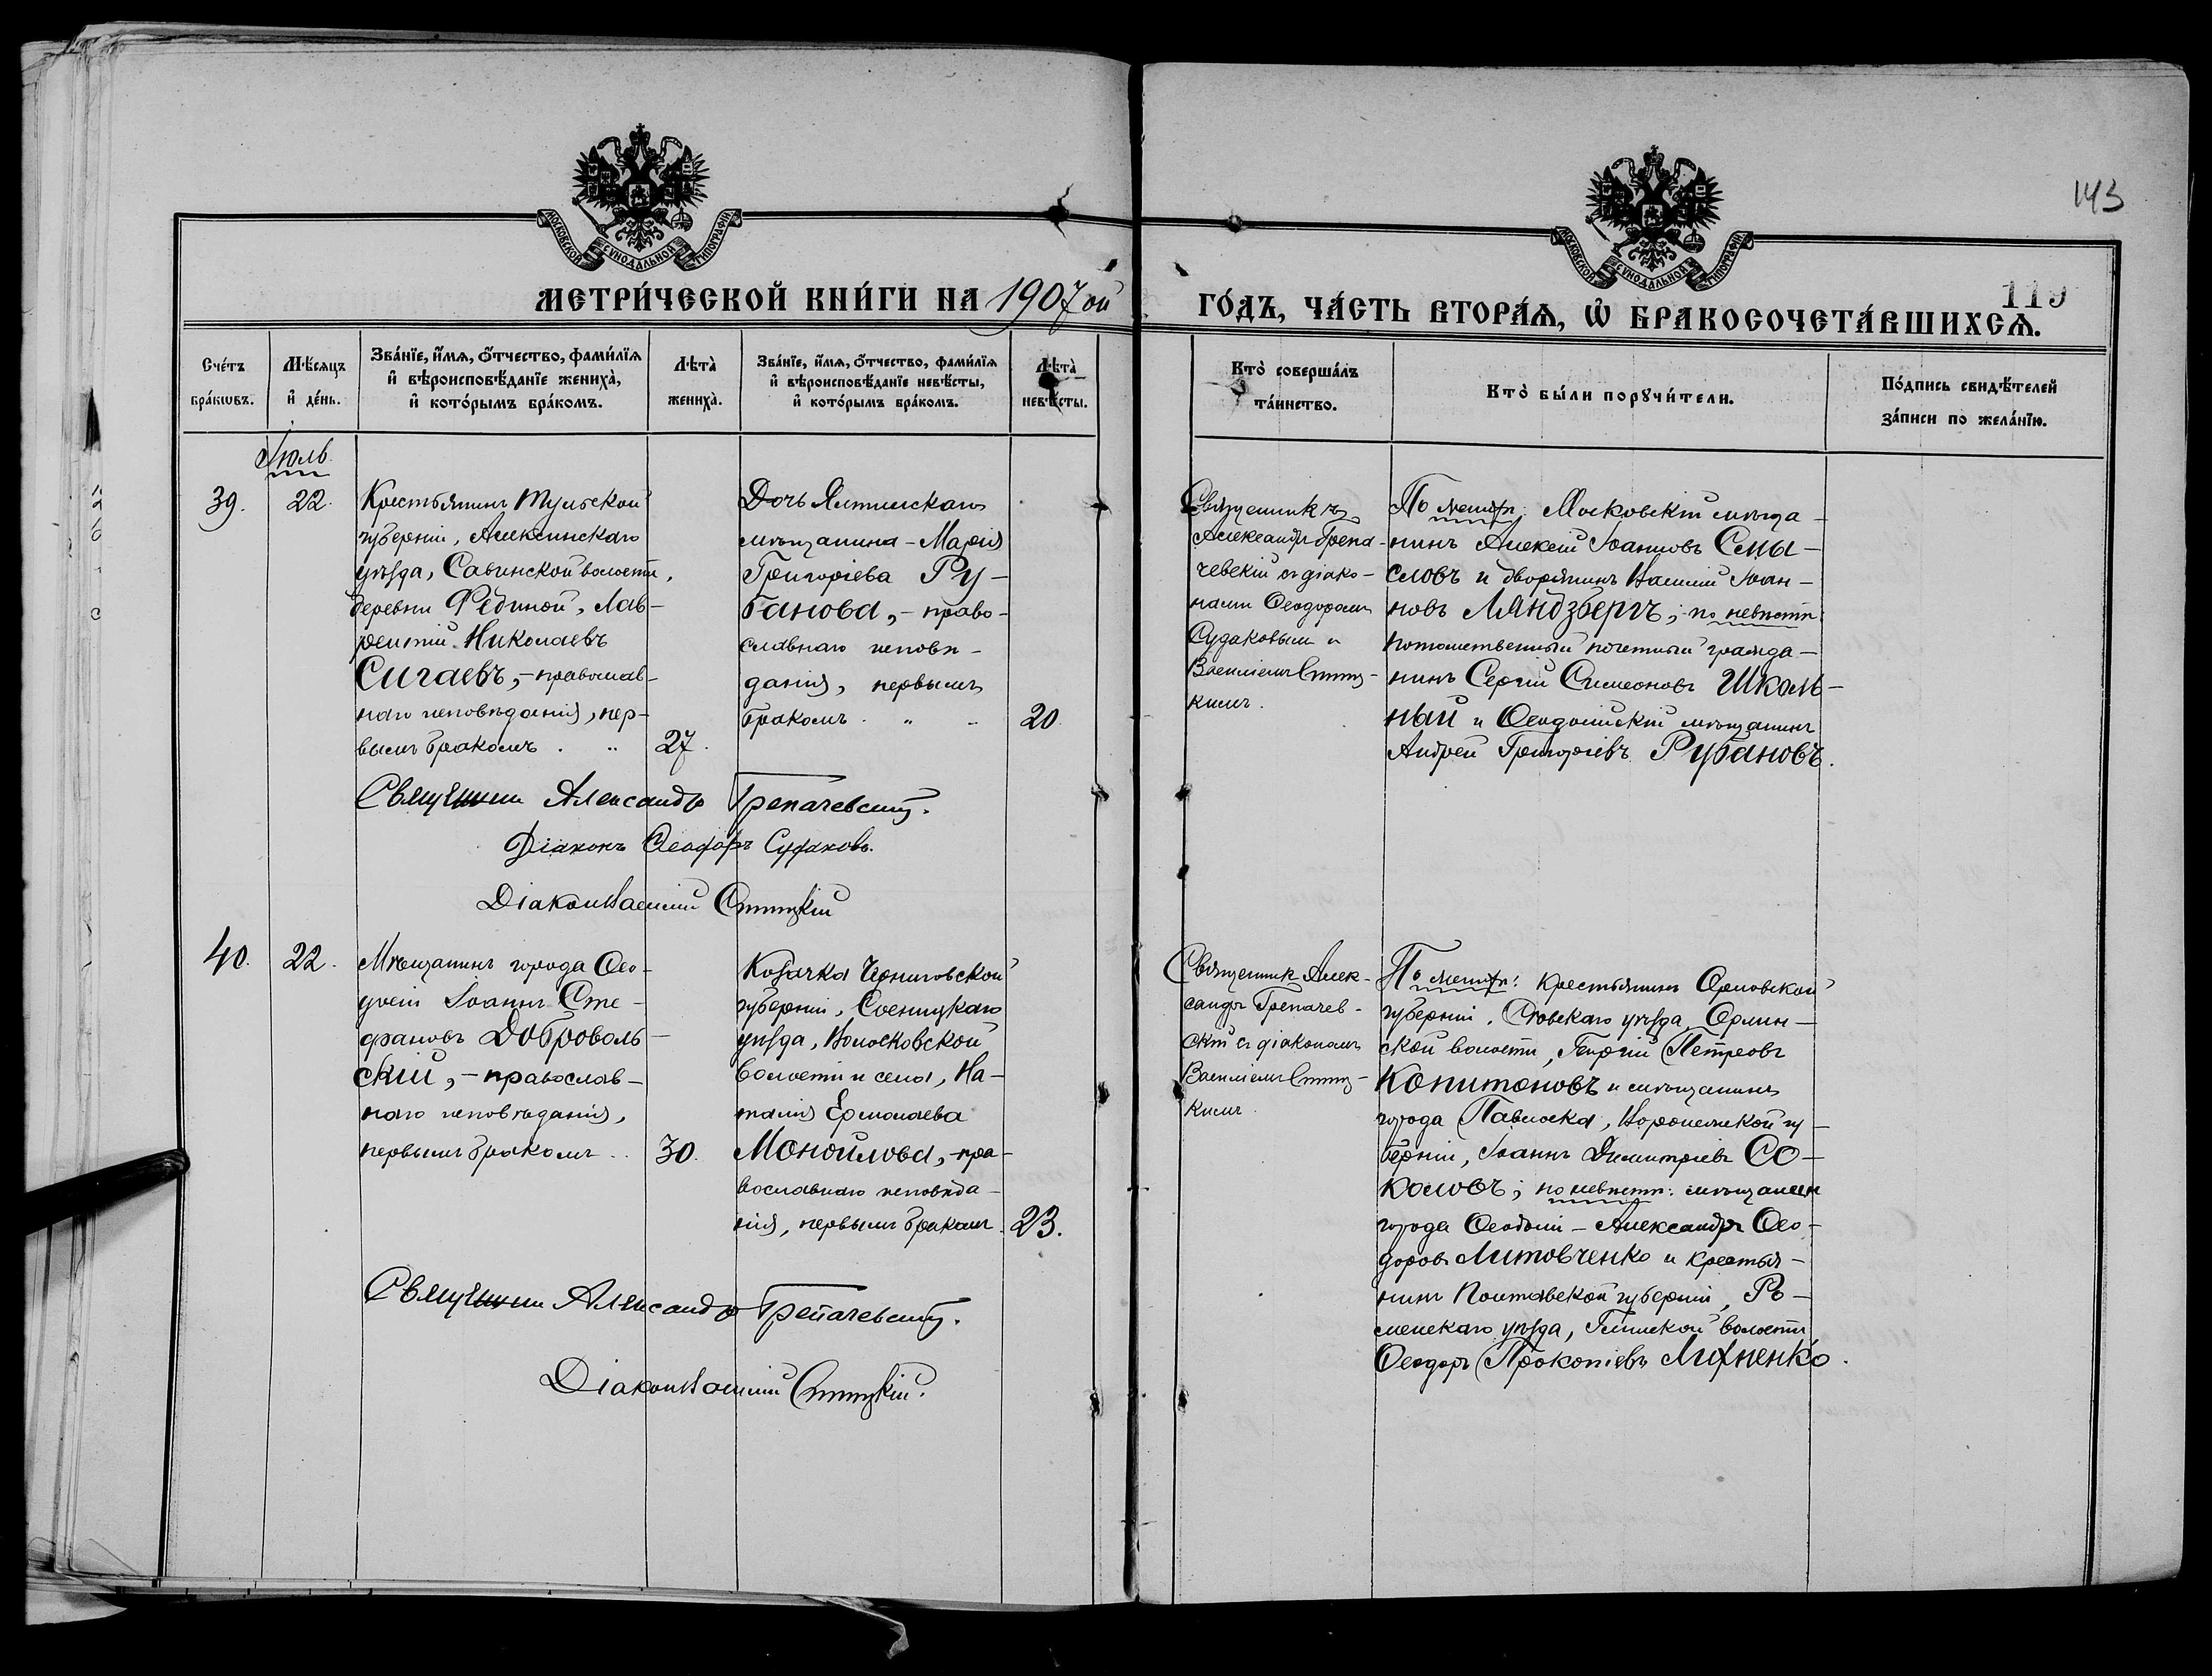 143
МОСКОВСКОЙ СѴНОДАЛЬНОЙ ТИПОГРАФІИ
МОСКОВСКОЙ СѴНОДАЛЬНОЙ ТИПОГРАФІИ
МЕТРИ́ЧЕСКОЙ КНИ́ГИ НА 1907ой
ГО́ДЪ, ЧА́СТЬ ВТОРА́Ѧ, Ѡ҆ БРАКОСОЧЕТА́ВШИХСѦ.
119
Сче́тъ
бра́кѡвъ.
Мѣ́сяцъ
и҆ де́нь.
Зва́нїе, и҆́мѧ, ѻ҆́тчество, фами́лїѧ
и҆ вѣроисповѣ́данїе жениха̀,
и҆ кото́рымъ бра́комъ.
Лѣта̀
жениха̀.
Зва́нїе, и҆́мѧ, ѻ҆́тчество, фами́лїѧ
и҆ вѣроисповѣ́данїе невѣ́сты,
и҆ кото́рымъ бра́комъ.
Лѣта̀
невѣ́сты.
Кто̀ соверша́лъ
та́инство.
Кто̀ бы́ли порꙋчи́тели.
По́дпись свидѣ́телей
за́писи по жела́нїю.
Іюль
39.
22.
Крестьянинъ Тульской
губерніи, Алексинскаго
уѣзда, Савинской волости,
деревни Фединой, Лав-
рентій Николаевъ
Сигаевъ,- православ-
наго исповѣданія, пер-
вымъ бракомъ . "
27.
Дочь Ялтинскаго
мѣщанина - Марія
Григоріева Ру-
банова,- право-
славнаго исповѣ-
данія, первымъ
бракомъ . " -
20.
Священникъ
Александръ Трепа-
чевскій съ діако-
нами Ѳеодоромъ
Судаковымъ и
Василіемъ
кимъ.
По женихѣ: Московскій мѣща-
нинъ Алексій Іоанновъ Смы-
словъ и дворянинъ Василій Іоан-
новъ Ляндзбергъ; по невѣстѣ:
потомственный почетный гражда-
нинъ Сергій Симеоновъ Школь-
ный и Ѳеодосійскій мѣщанинъ
Андрей Григоріевъ Рубановъ.
Священникъ Александръ Трепачевскій.
Діаконъ Ѳеодоръ Судаковъ.
Діаконъ Василій
40.
22.
Мѣщанинъ города Ѳео-
досіи Іоаннъ Сте-
фановъ Доброволь-
скій,- православ-
наго исповѣданія,
первымъ бракомъ ..
30.
Козачка Черниговской
губерніи, Сосницкаго
уѣзда, Волосковской
волости и села, На-
талія Ермолаева
Монойлова,- пра-
вославнаго исповѣда-
нія, первымъ бракомъ.
23.
Священник Алек-
сандръ Трепачев-
скій съ діакономъ
Василіемъ
кимъ.
По женихѣ: крестьянинъ Орловской
губерніи, уѣзда,
ской волости, Георгій Петровъ
Копитоновъ и мѣщанинъ
города Павловска, Воронежской гу-
берніи, Іоаннъ Димитріевъ Со-
коловъ; по невѣстѣ: мѣщанин
города Ѳеодосіи - Александръ Ѳео-
доровъ Литовченко и крестья-
нинъ Полтавской губерніи, Ро-
менскаго уѣзда, волости
Ѳеодоръ Прокопіевъ Лихненко.
Священникъ Александръ Трепачевскій.
Діаконъ Василій